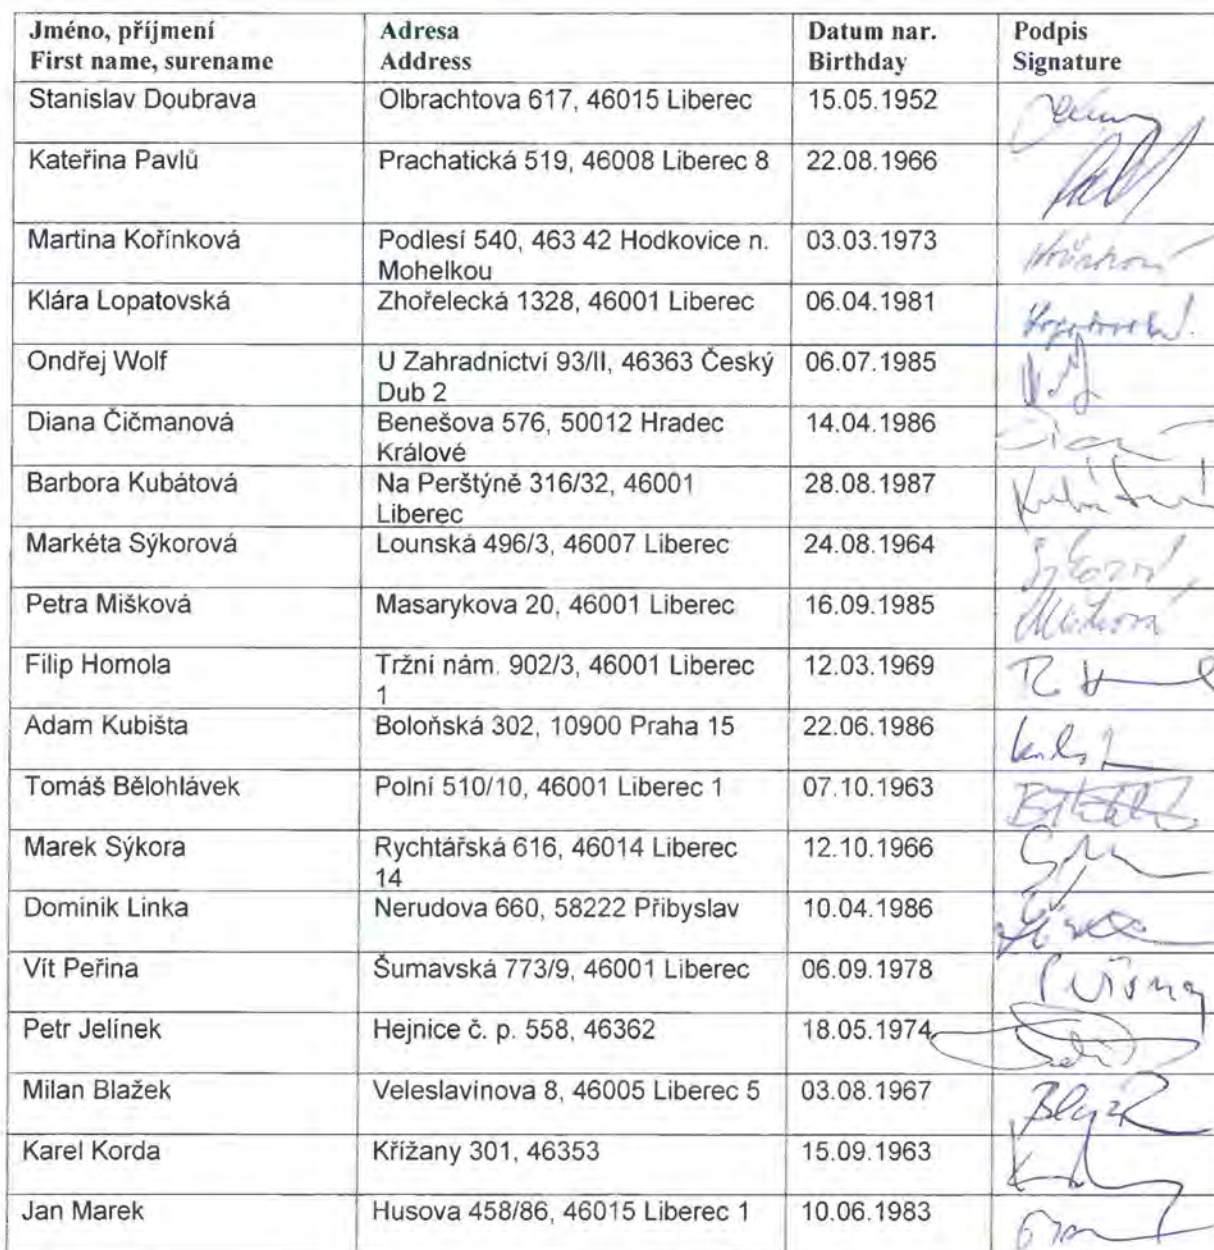 Jméno, příjmení Adresa Datum nar. Podpis
First name, surename Address Birthday Signature
Stanislav Doubrava Olbrachtova 617, 46015 Liberec 15.05.1952
Kateřina Pavlů Prachatická 519, 46008 Liberec 8 22.08.1966
Martina Kořínková Podlesí 540, 463 42 Hodkovice n. 03.03.1973
Mohelkou
Klára Lopatovská Zhořelecká 1328, 46001 Liberec 06.04.1981
Ondřej Wolf U Zahradnictví 93/II, 46363 Český 06.07.1985
Dub 2
Diana Čičmanová Benešova 576, 50012 Hradec 14.04.1986
Králové
Barbora Kubátová Na Perštýně 316/32, 46001 28.08.1987
Liberec
Markéta Sýkorová Lounská 496/3, 46007 Liberec 24.08.1964
Petra Mišková Masarykova 20, 46001 Liberec 16.09.1985
Filip Homola Tržní nám. 902/3, 46001 Liberec 12.03.1969
1
Adam Kubišta Boloňská 302, 10900 Praha 15 22.06.1986
Tomáš Bělohlávek Polní 510/10, 46001 Liberec 1 07.10.1963
Marek Sýkora Rychtářská 616, 46014 Liberec 12.10.1966
14
Dominik Linka Nerudova 660, 58222 Přibyslav 10.04.1986
Vít Peřina Šumavská 773/9, 46001 Liberec 06.09.1978
Petr Jelínek Hejnice č. p. 558, 46362 18.05.1974
Milan Blažek Veleslavínova 8, 46005 Liberec 5 03.08.1967
Karel Korda Křížany 301, 46353 15.09.1963
Jan Marek Husova 458/86, 46015 Liberec 1 10.06.1983